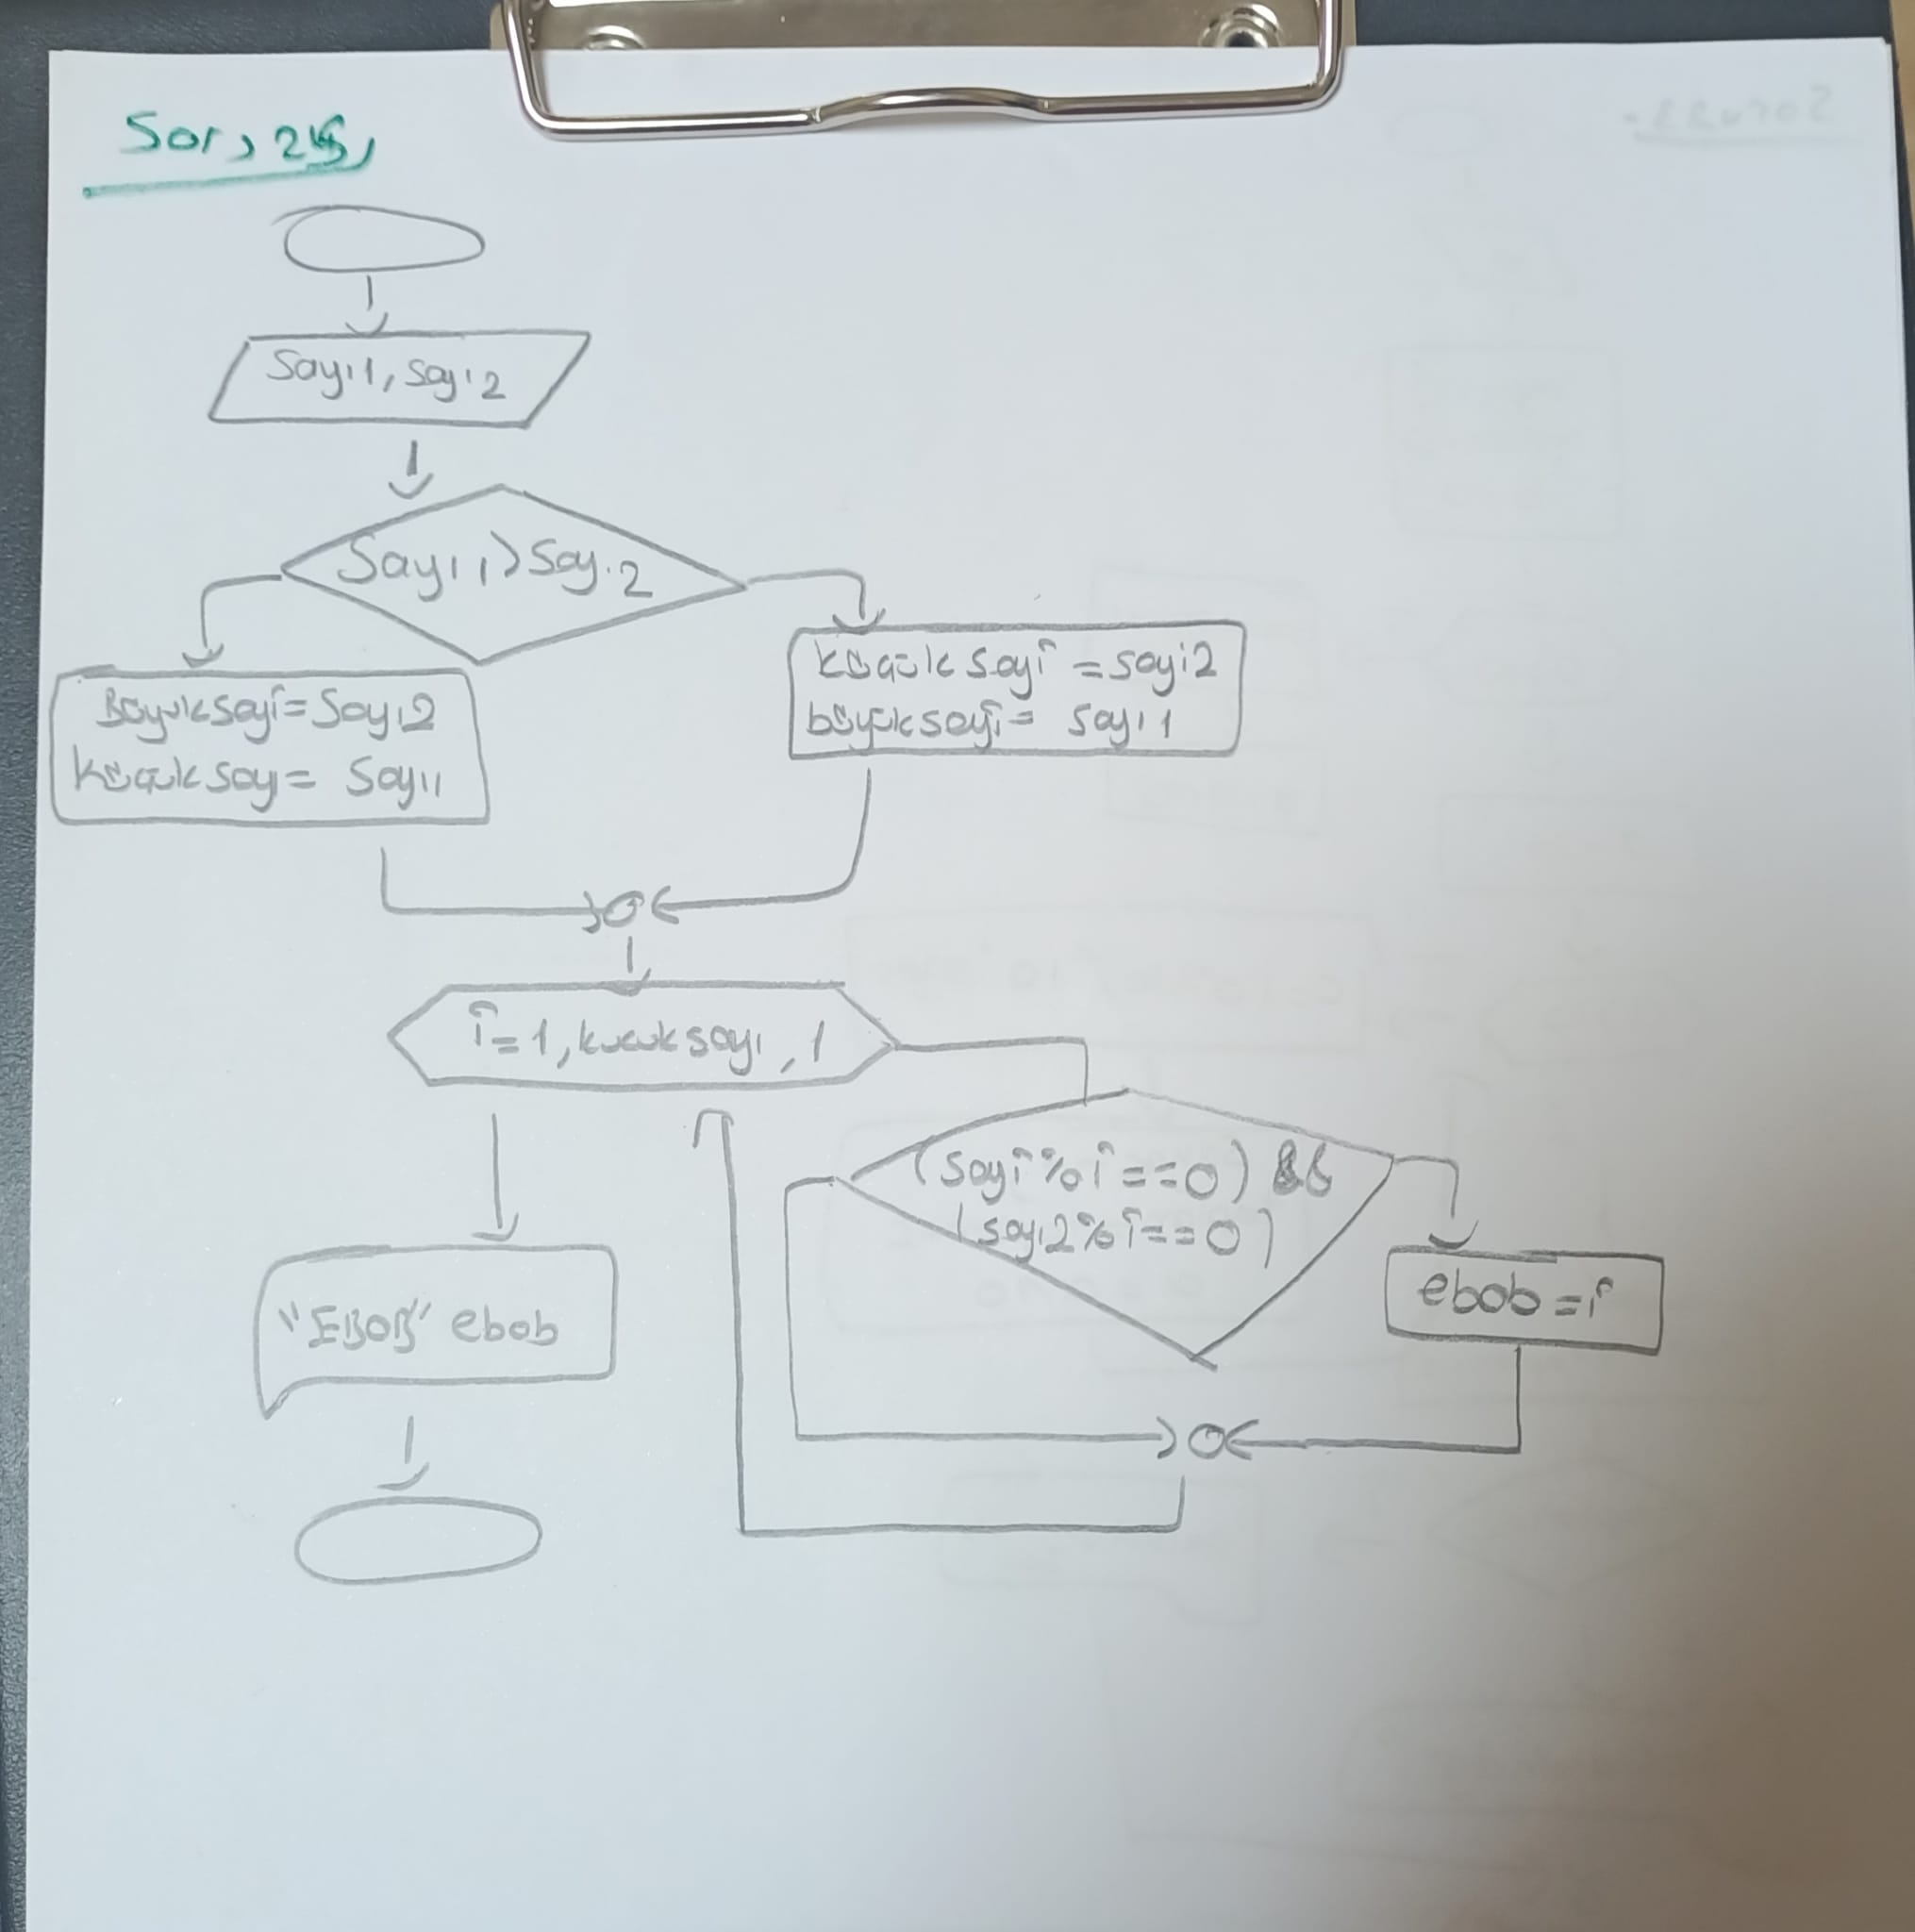 Soru 25,
Sayı1, Sayı2
Sayı1 > Sayı2
Büyüksayi = Sayı2
küçüksayı = Sayı1
küçüksayi = sayi2
büyüksayi = sayı1
i=1, kucuksayı, 1
(sayi % i == 0) &&
(sayı2 % i == 0)
ebob = i
"EBOB" ebob